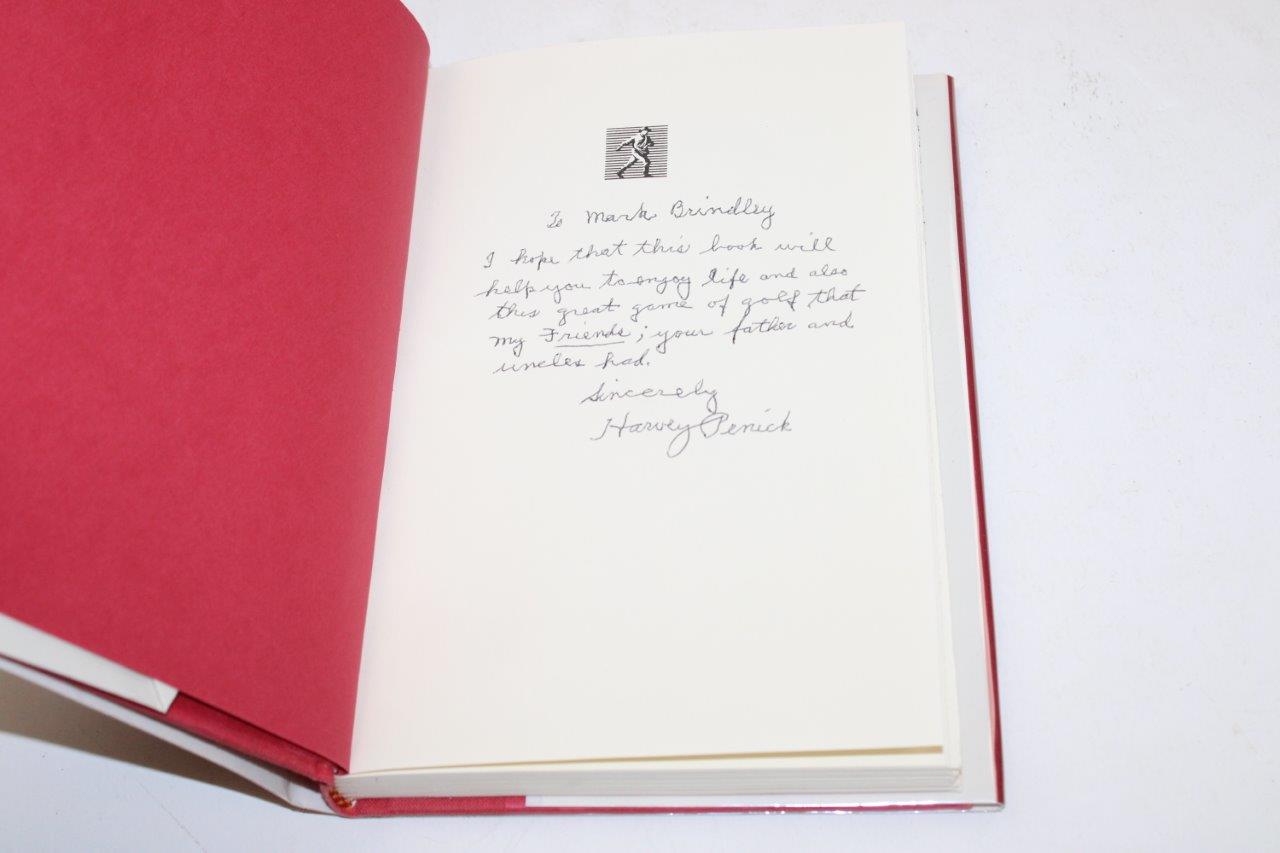 To Mark Brindley
I hope that this book will
help you to enjoy life and also
this great game of golf that
my Friends; your father and
uncles had.
Sincerely
Harvey Penick